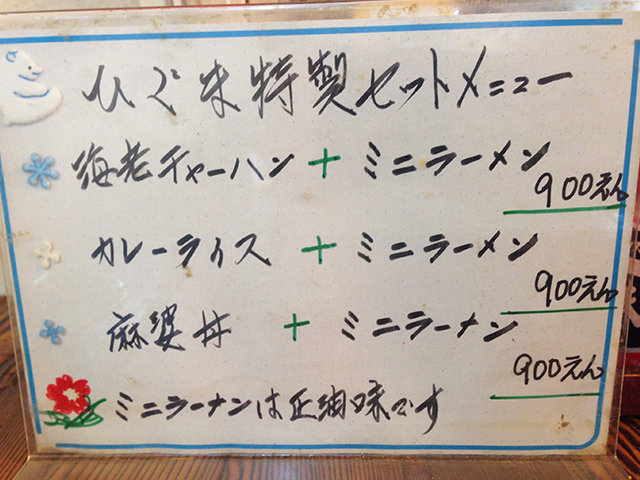 ひぐま特製セットメニュー
海老チャーハン + ミニラーメン
900えん
カレーライス + ミニラーメン
900えん
麻婆丼 + ミニラーメン
900えん
ミニラーメンは正油味です